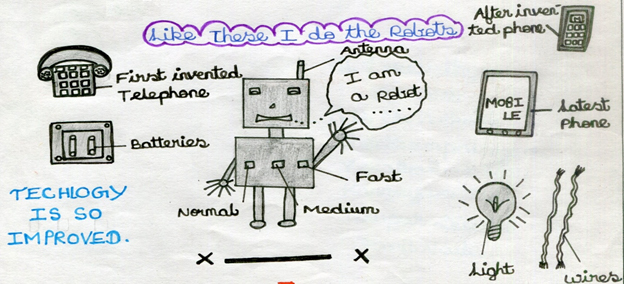 Like These I do the Robots
After inven-
ted phone
Antenna
First invented
Telephone
I am
a Robot...
MOBI
LE
Latest
Phone
Batteries
Fast
Normal
Medium
TECHLOGY
IS SO
IMPROVED.
Light
Wires